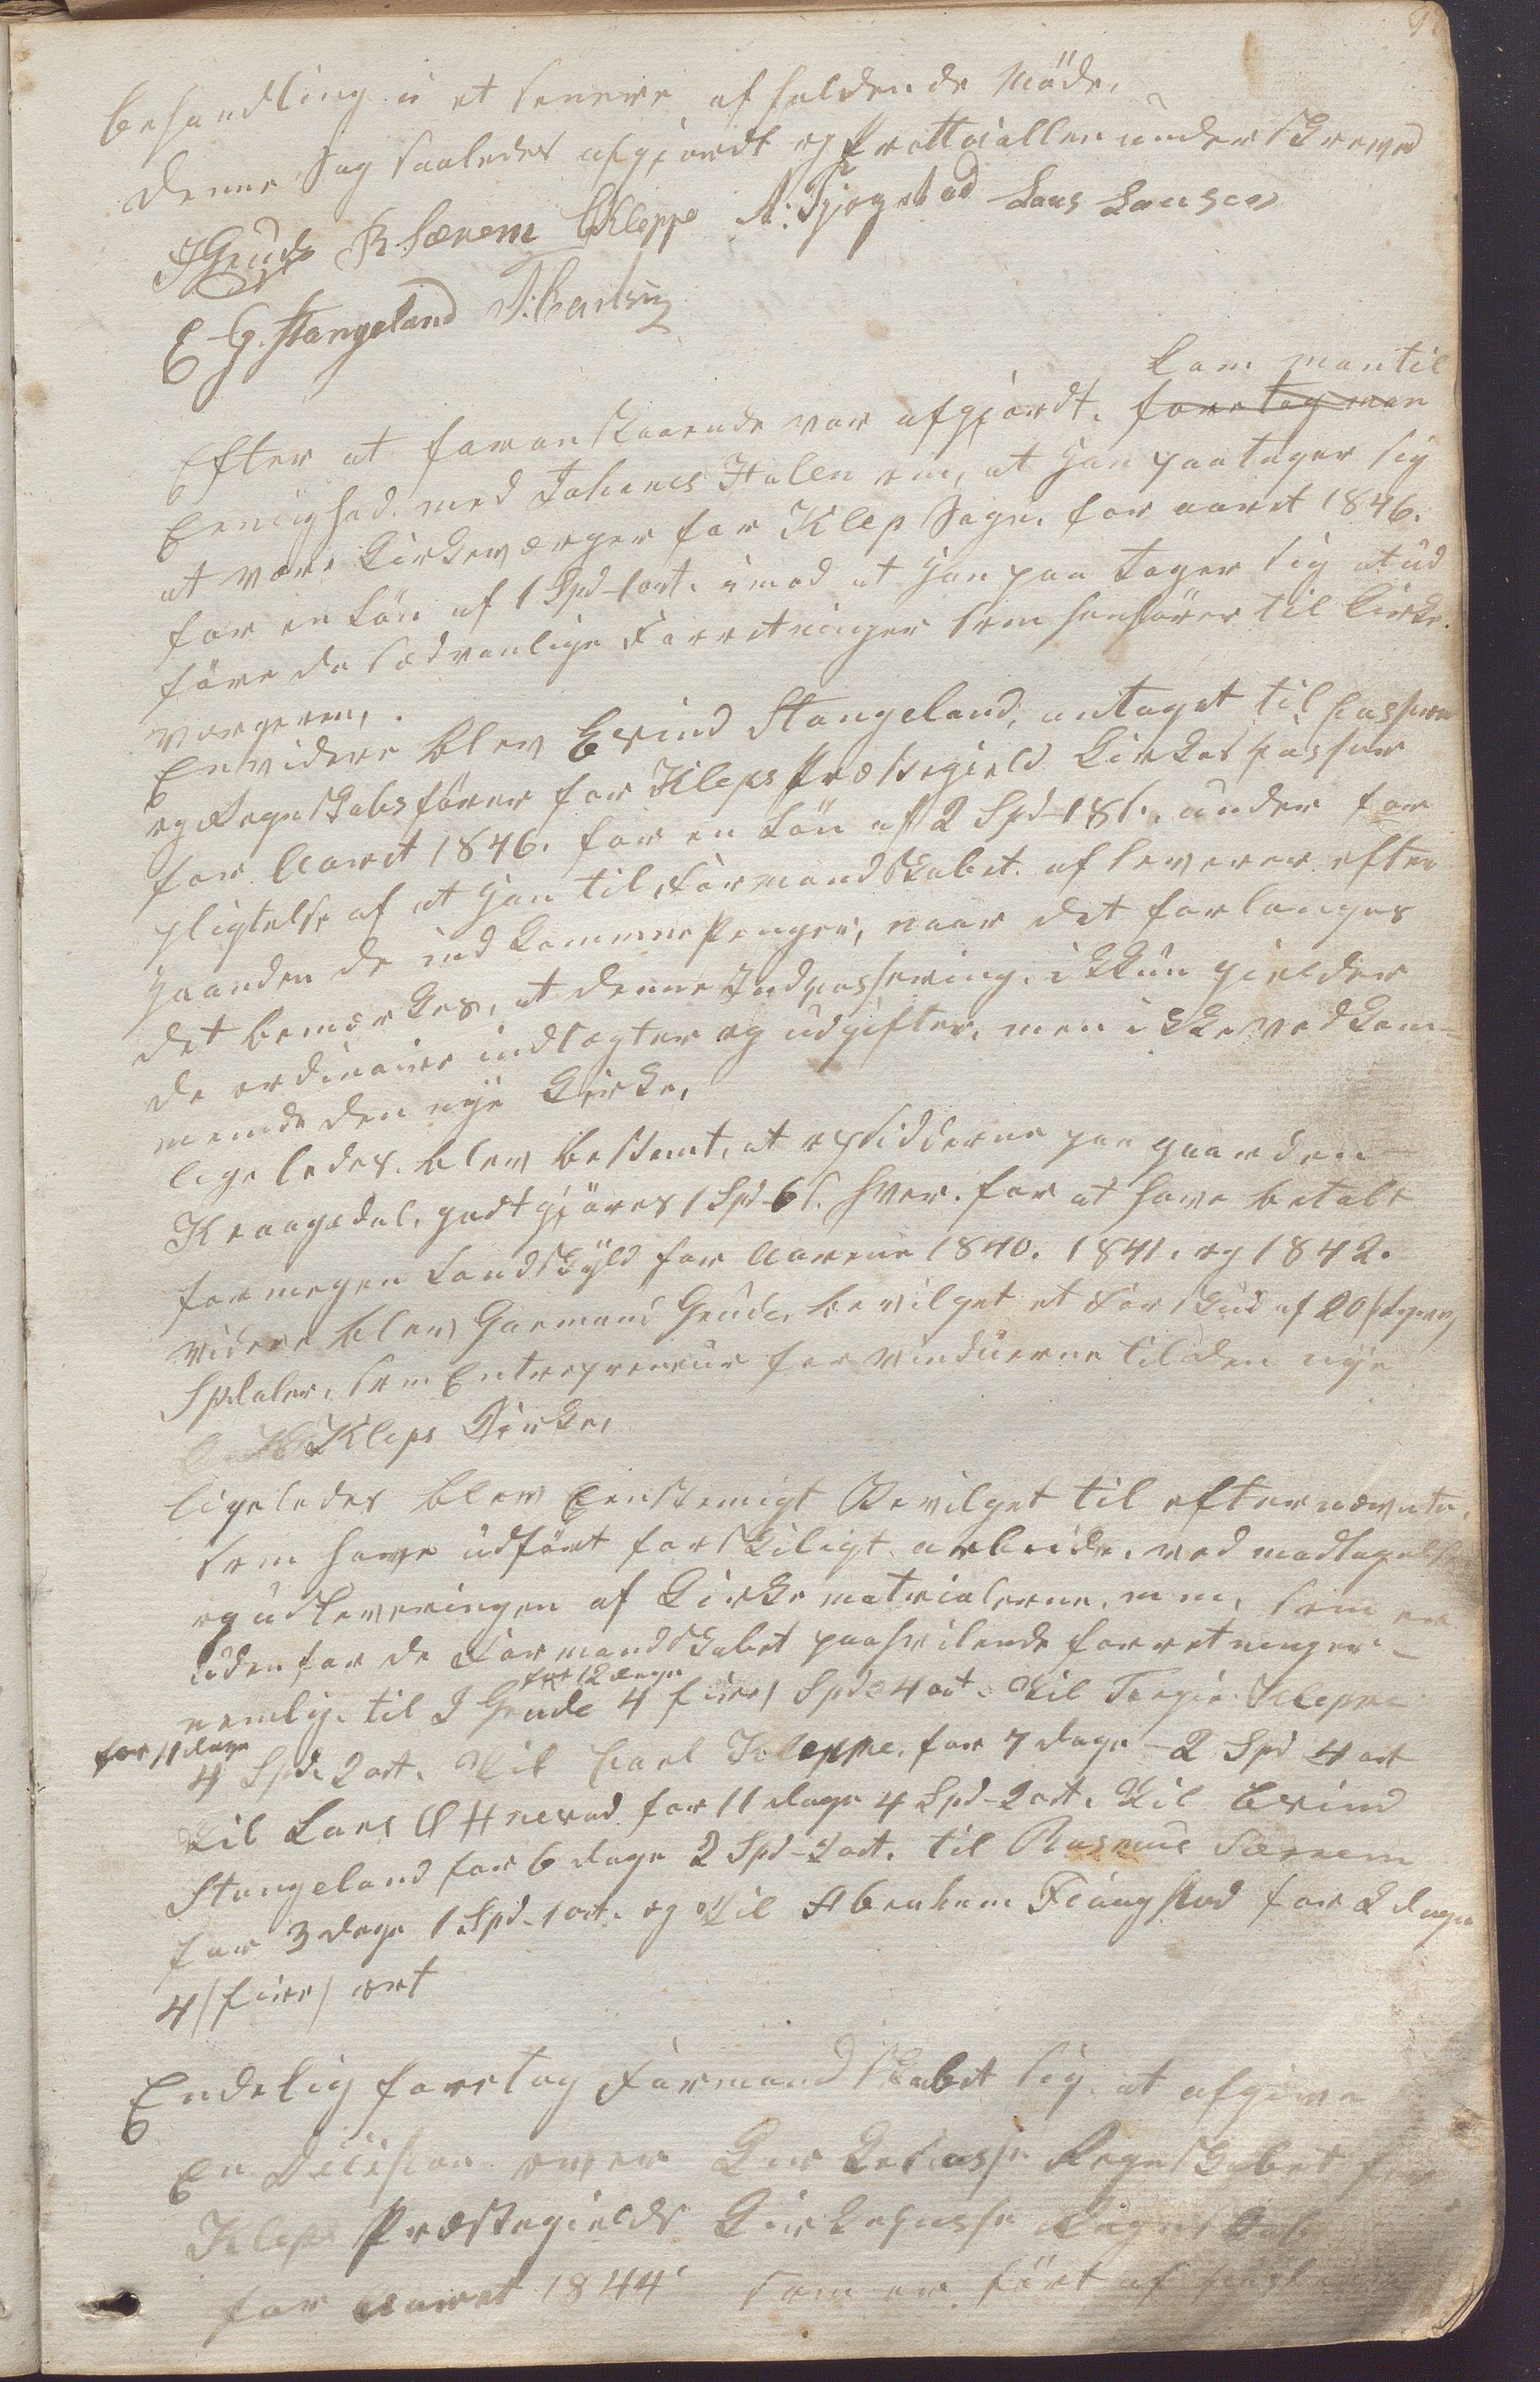 behandling i et senere afholdende Møde,
denne Sag saaledes afgjordt og Prottocallen underskreved
I Grude R Særem C Kleppe A: Tjøgstad Lars Larsen
E G. Stangeland T: Carlsen
kom man til
Efter at foranstaaende var afgjordt. foretog man
Eenighed med Johanes Halen om, at han paatager sig
at være Kirkeværger for Klep Sogn for aaret 1846.
for en Løn af 1 Spd 1 ort. imod at han paa tager sig at ud
føre de sædvanlige Forretninger som henhører til Kirke-
værgeren,.
Envidere blev Evind Stangeland, antaget til Casserer
og Regnskabsfører for Kleps Præstegield Kirkes kasser
for Aaret 1846. for en Løn af 2 Spd 18 s. under for
pligtelse af at han til Formandskabet afleverer efter
haanden de indkomne Penger, naar det forlanges
det bemærkes, at denne Indkassering, ikkun gielder
de ordinaire indtægter og udgifter, men ikke vedkom-
mende den nye Kirke,
ligeledes blev bestemt, at opsidderne paa gaarden
Kraagedal, godtgjøres 1 Spd 6 s. hver. for at have betalt
formegen Landskyld for Aarene 1840. 1841. og 1842.
videre blev Gaemund Grude, bevilget et Forskud af 20 /tyve/
Spdaler, som Entrepreneur for vinduerne til den nye
Kleps Kirke,
ligeledes blev Eenstemigt Bevilget til efternævnte,
som have udført forskiligt arbeide, ved modtagelse
og udleveringen af Kirke matrialerne, m m, som er
udenfor de Formandskabet paahvilende forretninger-
for 12 dage
nemlig. til I Grude 4 /fire/ Spd 4 ort. Til Torgier Kleppe
for 11 dage
4 Spd. 2 ort. Til Carl Kleppe, for 7 dage - 2 Spd 4 ort
Til Lars Ø Hnevad for 11 dage 4 Spd - 2 ort. Til Evind
Stangeland for 6 dage 2 Spd - 2 ort. til Rasmus Særem
for 3 dage 1 Spd - 1 ort. og Til Abraham Tiaagstad for 2 dage
4 /fire/ ort
Endelig foretog Formandskabet sig at afgive
En Decision over Kirkekasse Regnskabet for
Kleps Præstegields Kirkekasse Regnskab
for Aaret 1844 som er ført af